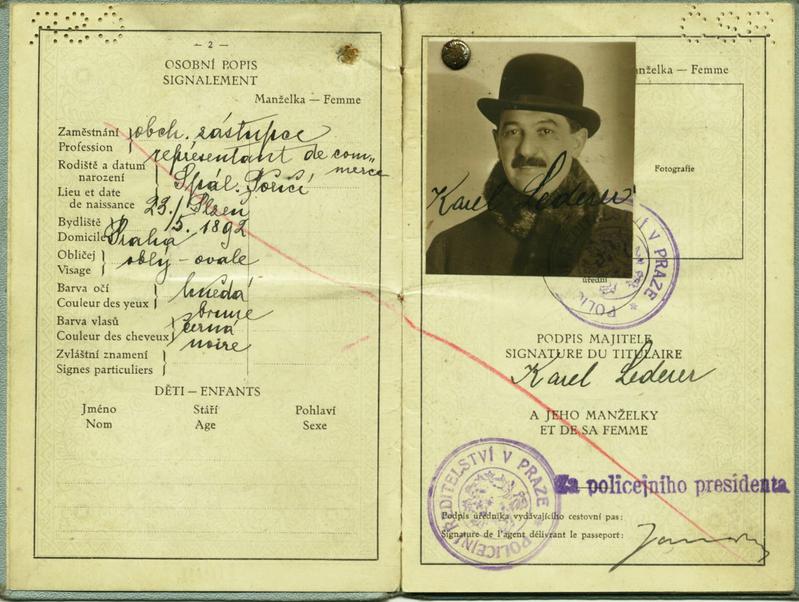 — 2 —
OSOBNÍ POPIS
SIGNALEMENT
Manželka — Femme
Zaměstnání
Profession
obch. zástupce
représentant de commerce
Rodiště a datum
narození
Lieu et date
de naissance
Spál. Poříčí
Plzeň
23./5. 1892
Bydliště
Domicile
Praha
Obličej
Visage
oblý - ovale
Barva očí
Couleur des yeux
hnědá
brune
Barva vlasů
Couleur des cheveux
černá
noire
Zvláštní znamení
Signes particuliers
DĚTI — ENFANTS
Jméno Stáří Pohlaví
Nom Age Sexe
Manželka — Femme
Fotografie
Karel Lederer
úřední
POLIC Í V PRAZE
PODPIS MAJITELE
SIGNATURE DU TITULAIRE
Karel Lederer
A JEHO MANŽELKY
ET DE SA FEMME
POLICEJNÍ ŘEDITELSTVÍ V PRAZE
Za policejního presidenta
Podpis úředníka vydávajícího cestovní pas:
Signature de l'agent délivrant le passeport: